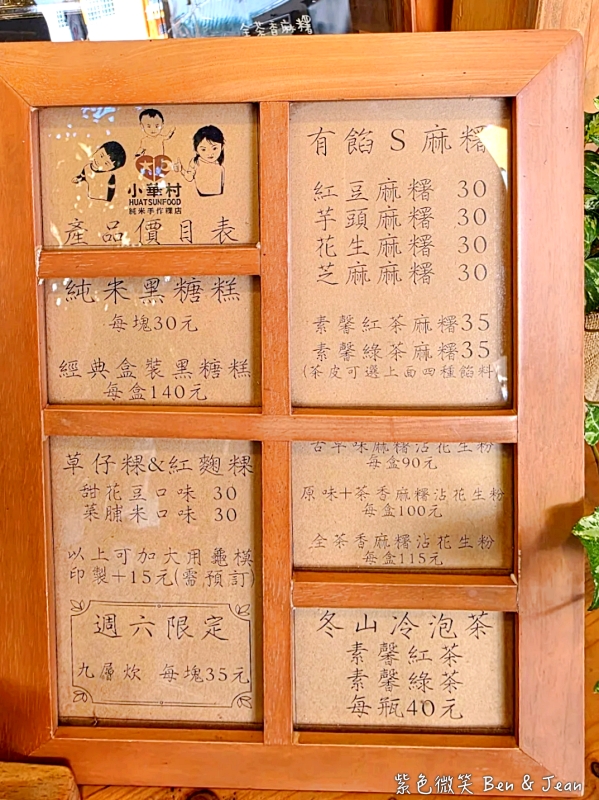 全茶香麻糬
小華村
HUATSUNFOOD
純米手作粿店
產品價目表
純米黑糖糕
每塊30元
經典盒裝黑糖糕
每盒140元
草仔粿&紅麴粿
甜花豆口味 30
菜脯米口味 30
以上可加大用龜模
印製+15元(需預訂)
週六限定
九層炊 每塊35元
有餡S麻糬
紅豆麻糬 30
芋頭麻糬 30
花生麻糬 30
芝麻麻糬 30
素馨紅茶麻糬35
素馨綠茶麻糬35
(茶皮可選上面四種餡料
古早味麻糬沾花生粉
每盒90元
原味+茶香麻糬沾花生粉
每盒100元
全茶香麻糬沾花生粉
每盒115元
冬山冷泡茶
素馨紅茶
素馨綠茶
每瓶40元
紫色微笑 Ben & Jean